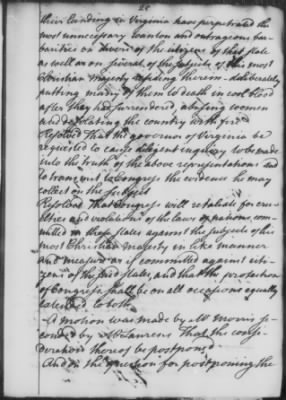 their landing in Virginia have perpetrated the
most unnecessary wanton and outrageous bar-
barities on divers of the citizens of that State
as well as on several of the subjects of his most
Christian Majesty residing therein deliberately
putting many of them to death in cool blood
after they had surrendered, abusing women
and desolating the country with fire
Resolved That the governor of Virginia be
requested to cause diligent enquiry to be made
into the truth of the above representations and
to transmit to Congress the evidence he may
collect on the subject
Resolved That Congress will retaliate for cru-
elties and violations of the laws of nations com-
mitted in these states against the subjects of his
most Christian Majesty in like manner
and measure as if committed against citi-
zens of the said states, and that the protection
of Congress shall be on all occasions equally
extended to both
A motion was made by Mr Morris se-
conded by Mr Laurens That the consi-
deration thereof be postponed
And on the question for postponing the